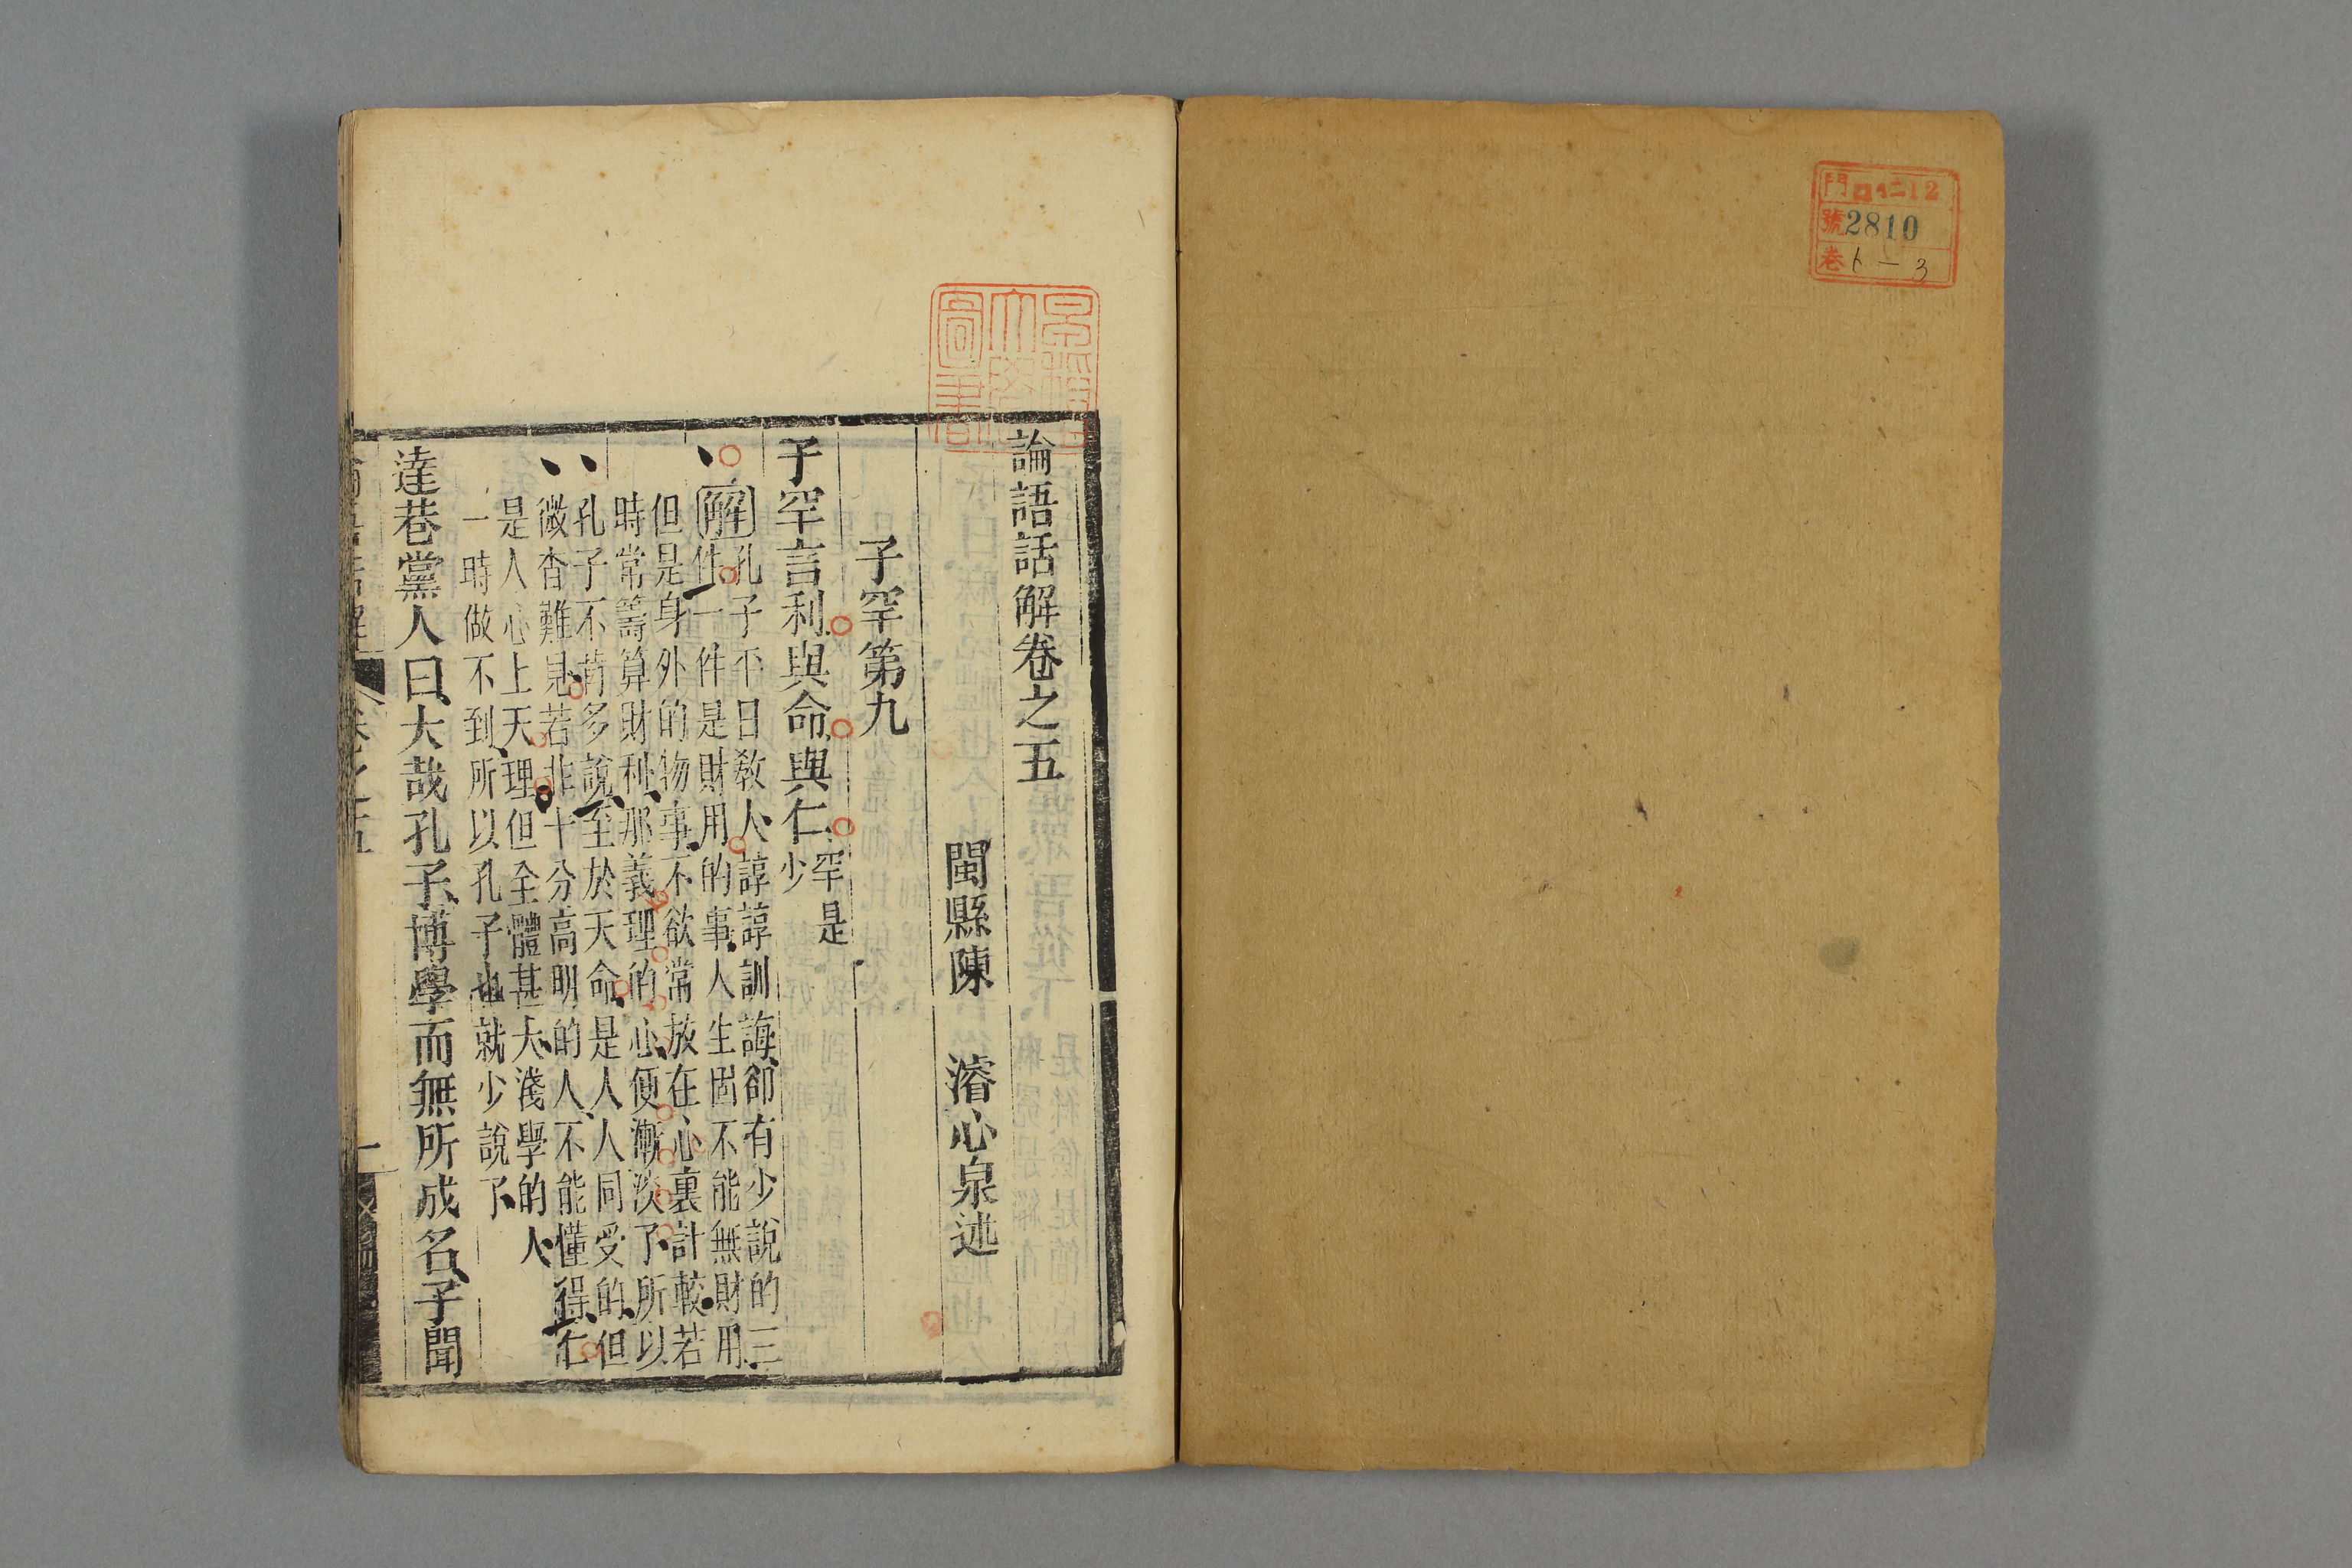 門 ロ仁12
號 2810
卷 ト一3
論語話解卷之五
閩縣陳 濬心泉述
子罕第九
子罕言利與命與仁罕是少
解 孔子平日敎人諄諄訓誨卻有少說的三
件一件是財用的事人生固不能無財用
但是身外的物事不欲常放在心裏計較若
時常籌算財利那義理的心便漸淡了所以
孔子不肯多說至於天命是人人同受的但
微杳難見若非十分高明的人不能懂得仁
是人心上天理但全體甚大淺學的人
一時做不到所以孔子也就少說了
達巷黨人曰大哉孔子博學而無所成名子聞
卷之五
一